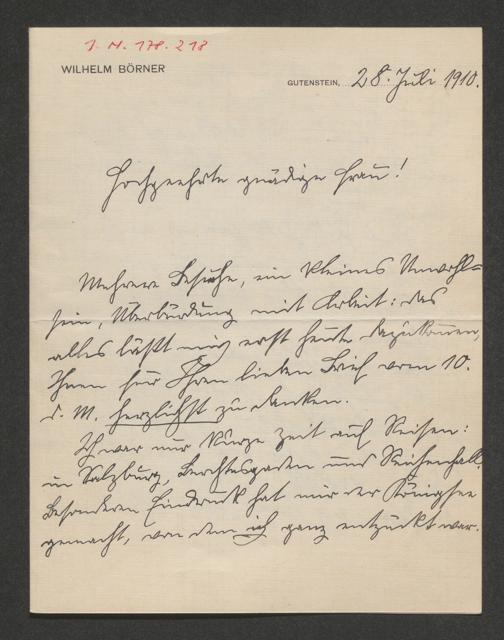 J. N. 178.218
WILHELM BÖRNER
GUTENSTEIN, 28. Juli 1910.
Hochgeehrte gnädige Frau!
Mehrere Besuche, ein kleines Unwohl-
sein, Überbürdung mit Arbeit: das
alles läßt mich erst heute dazukommen,
Ihnen für Ihren lieben Brief vom 10.
d. M. herzlichst zu danken.
Ich war nur kurze Zeit auf Reisen:
in Salzburg, Berchtesgaden und Reichenhall.
Besonderen Eindruck hat mir der Königsee
gemacht, von dem ich ganz entzückt war.